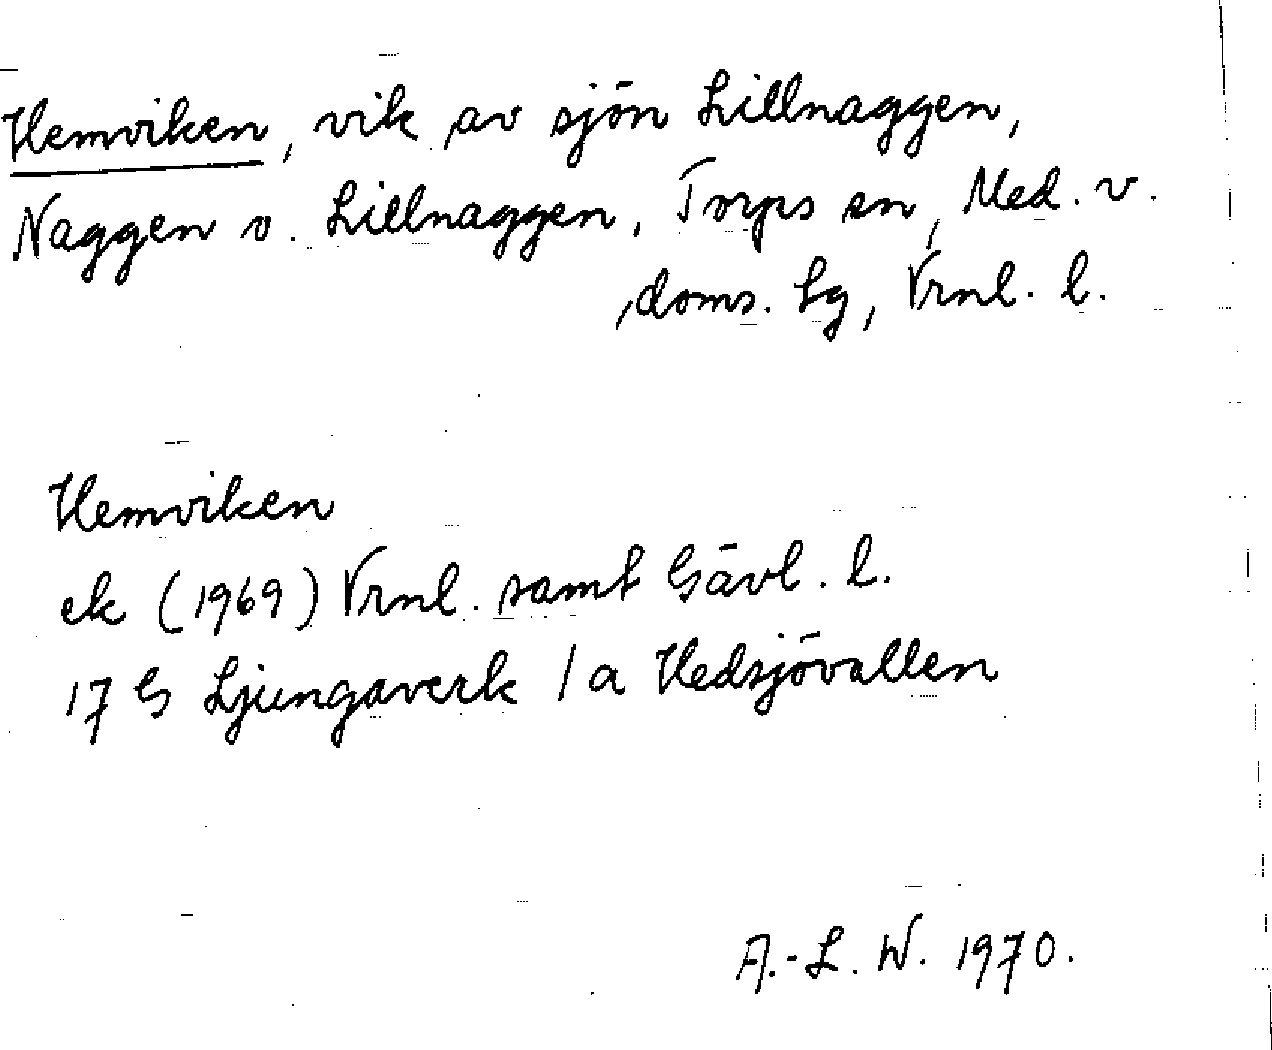 Hemviken, vik av sjön Lillnaggen,
Naggen o. Lillnaggen, Torps sn, Med. v.
doms. lg, Vrnl. l.
Hemviken
ek (1969) Vrnl. samt Gävl. l.
17 G Ljungaverk / a Hedsjövallen
A.-L. W. 1970.